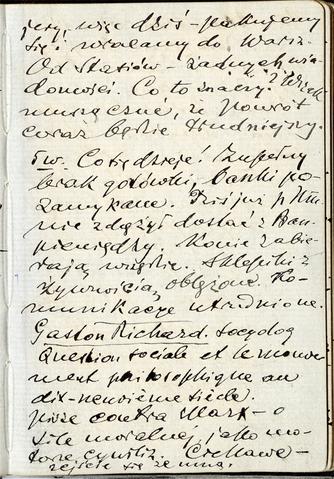 jery, więc dziś – pakujemy
się i wracamy do Warsz.
Od Stasiów – żadnych wia-
domości. Co to znaczy?
męczące, że powrót
coraz będzie trudniejszy.
Co się dzieje! Zupełny
brak gotówki, banki po-
zamykane. Dziś już p
nie zdążył dostać z Ban
pieniędzy. Konie zabie-
rają wszędzie. Sklepiki z
żywnością oblężone. Ko-
munikacje utrudnione.
Gaston Richard. socyolog
Question sociale et le mouve-
ment philosophique au
dix-neuvième siècle.
pisze contra Marx – o
sile moralnej, jako mo-
torze cywiliz. Ciekawe –
zejście się ze mną.